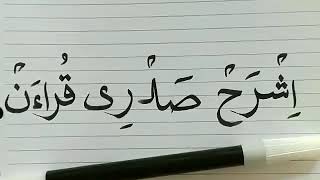 اِشْرَحْ صَدْرِى قُراءَنْ